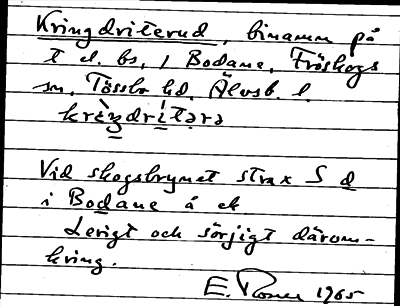 Kringdriterud, binamn på
t d. bs. / Bodane, Fröskogs
sn, Tössbo hd, Älvsb. l.
krìŋdrìtərə
Vid skogsbrynet strax S d
i Bodane å et
Lerigt och sörjigt därom-
kring.
E. 1965